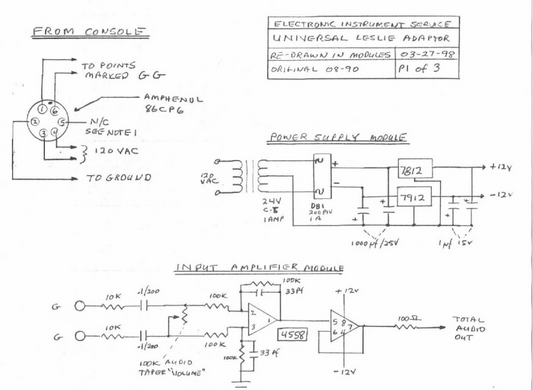 FROM CONSOLE
TO POINTS
MARKED G G
AMPHENUL
86CP6
1
6
2
5
3
4
N/C
SEE NOTE 1
120 VAC
TO GROUND
ELECTRONIC INSTRUMENT SERVICE
UNIVERSAL LESLIE ADAPTOR
RE-DRAWN IN MODULES 03-27-98
ORIGINAL 08-90 P1 of 3
POWER SUPPLY MODULE
120
VAC
24V
C.T.
1AMP
DB1
200PIV
1A
+
-
7812
7912
+12V
-12V
+
+
+
+
1000µf/25V
1µf 15V
INPUT AMPLIFIER MODULE
G
10K
.1/200
100K
100K
33Pf
2
3
1
4558
G
10K
.1/200
100K
100K
33Pf
100K AUDIO
TAPER "VOLUME"
+12V
5 8
6 4
7
-12V
100Ω
TOTAL
AUDIO
OUT